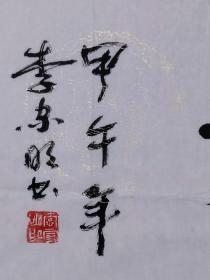 甲午年
李东明书